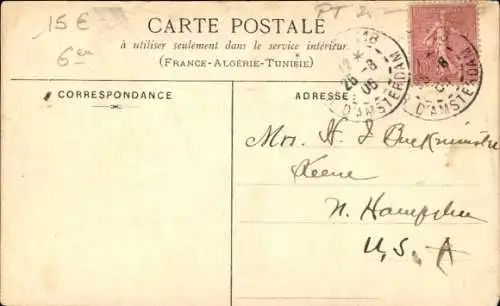 15 €
6 en
CARTE POSTALE
à utiliser seulement dans le service intérieur
(FRANCE-ALGÉRIE-TUNISIE)
CORRESPONDANCE
ADRESSE
12 *
26 - 8
06
D'AMSTERDAM
D'AMSTERDAM
Mrs. H J Buckminster
Keene
N. Hampshire
U, S, A